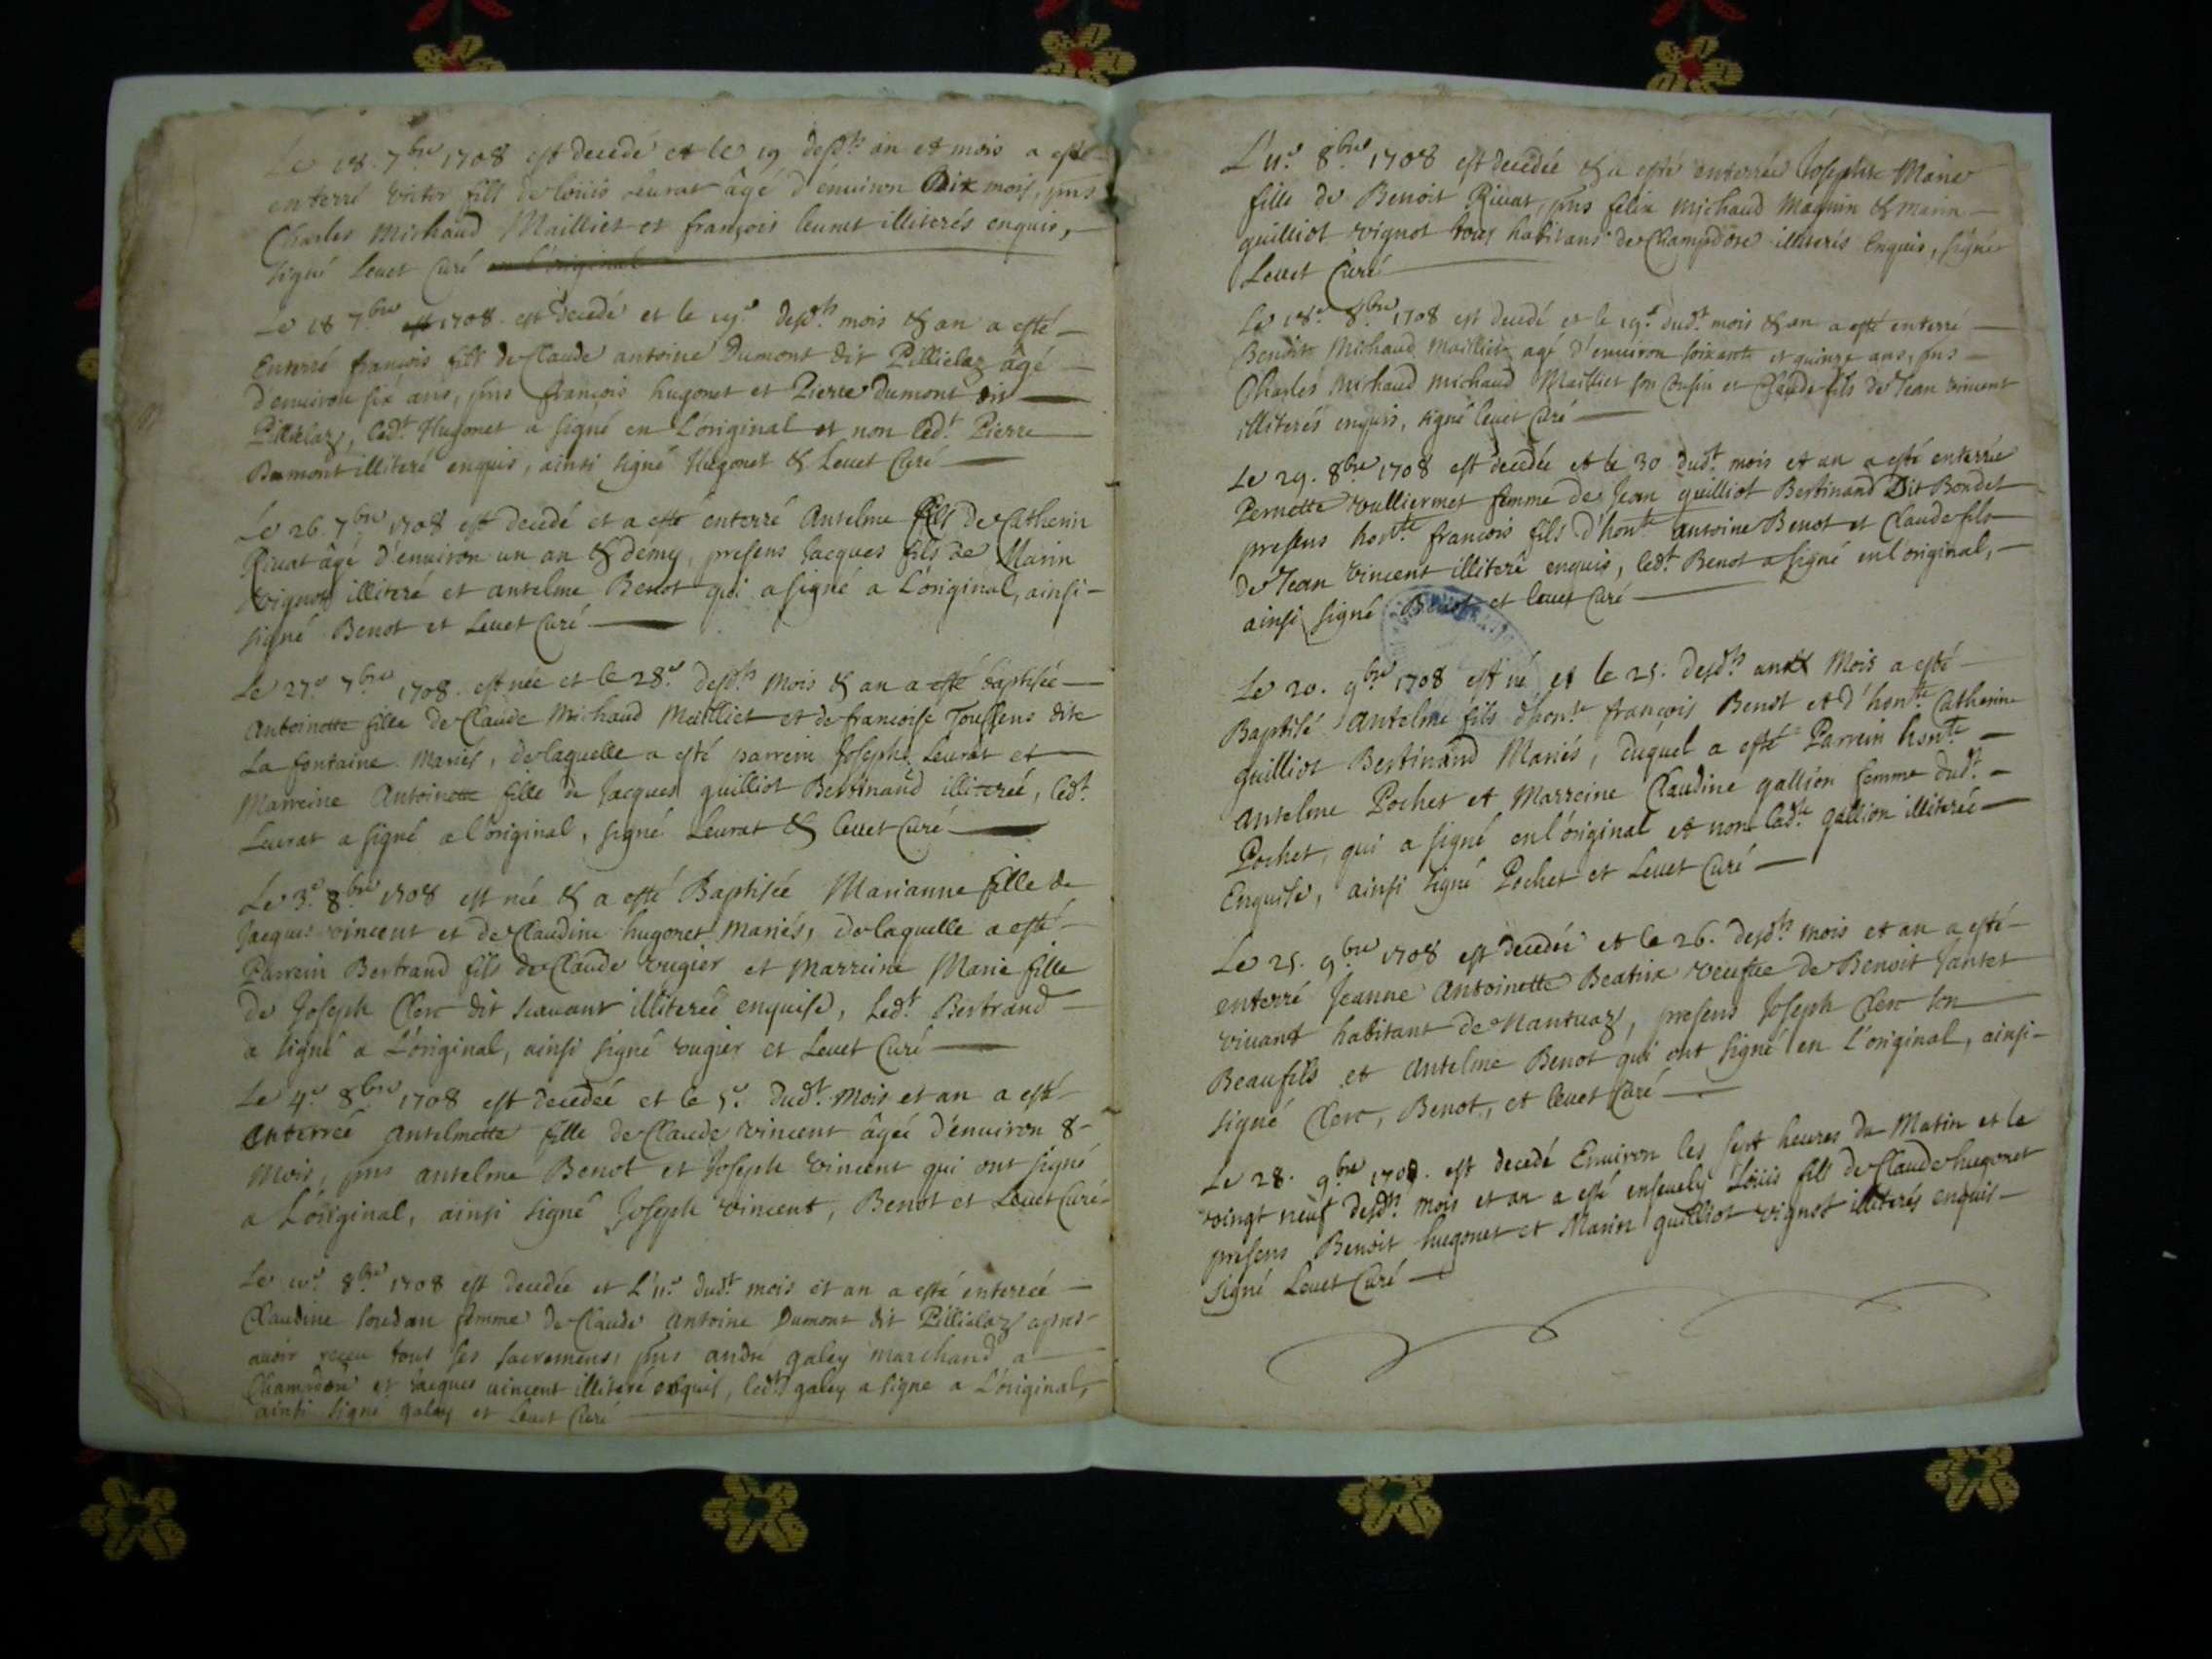 Le 18. 7bre 1708 est decedé et le 19 desdts an et mois a esté
enterré victor fils de loüis leurat âgé d'enuiron dix mois, pns
Charles Michaud Mailliet et françois leurat illiterés enquis,
signé Leuet Curé en l'original
Le 18 7bre est 1708. est decedé et le 19e. desdts mois & an a esté
Enterré françois fils de Claude antoine Dumont dit Pillielaz âgé
d'enuiron six ans, pns françois hugonet et Pierre Dumont dit
Pillielaz, ledt. Hugonet a signé en L'original et non ledt. Pierre
Dumont illiteré enquis, ainsi signé Hugonet & Leuet Curé
Le 26. 7bre 1708 est decedé et a esté enterré Antelme fils de Catherin
Riuat âgé d'enuiron un an & demy, presens Jacques fils de Marin
vignot illiteré et antelme Benot qui a signé a L'original, ainsi
signé Benot et Leuet Curé
Le 27e 7bre 1708. est née et le 28e desdts Mois & an a esté baptisée
Antoinette fille de Claude Michaud Mailliet et de francoise Toussens dite
La fontaine Mariés, de laquelle a esté parrein Joseph Leurat et
Marreine Antoinette fille de Jacques guilliot Bertinand illiterée, ledt.
Leurat a signé a l'original, signé Leurat & leuet Curé
Le 3e. 8bre 1708 est née & a esté Baptisée Marianne fille de
Jacques vincent et de Claudine hugonet Mariés, de laquelle a esté
Parrein Bertrand fils de Claude vugier et Marreine Marie fille
de Joseph Clerc dit scauant illiterée enquise, Ledt. Bertrand
a signé a L'original, ainsi signé vugier et Leuet Curé
Le 4e 8bre 1708 est decedée et le 5e. dudt. Mois et an a esté
Enterrée Antelmette fille de Claude vincent âgée d'enuiron 8
Mois, pns antelme Benot et Joseph vincent qui ont signé
a L'original, ainsi signé Joseph vincent, Benot et Leuet Curé
Le 10e. 8bre 1708 est decedée et L'11e dudt mois et an a esté enterrée
Claudine Soudan femme de Claude Antoine Dumont dit Pillielaz apres
auoir receu tous ses sacremens, pns andré galey marchand a
Champdore et Jacques vincent illiteré enquis, ledt galey a signe a L'original,
ainsi signé galey et Leuet Curé
L'11e. 8bre 1708 est decedée & a esté enterrée Josephte Marie
fille de Benoit Riuat, pns felix Michaud Magnin & Marin
guilliot vignot tous habitans de Champdore illiterés Enquis, signé
Leuet Curé
Le 18e. 8bre 1708 est decedé et le 19e dudt mois & an a esté enterré
Benoit Michaud Mailliet agé d'enuiron soixante et quinze ans, pns
Charles Michaud Michaud Mailliet son Cousin et Claude fils de Jean vincent
illiterés enquis, signé leuet Curé
Le 29. 8bre 1708 est decedée et le 30 dudt. mois et an a esté enterrée
Pernette vulliermet femme de Jean guilliot Bertinand Dit Bondet
presens honte. francois fils d'honte antoine Benot et Claude fils
de Jean vincent illiteré enquis, ledt. Benot a signé en l'original,
ainsi signé Benot et leuet Curé
Le 20. 9bre 1708 est né et le 25. desdts an & Mois a esté
Baptisé antelme fils d'honte françois Benot et d'honte Catherine
guilliot Bertinand Mariés, duquel a esté Parrein honte
antelme Pochet et Marreine Claudine gallion femme dudt.
Pochet, qui a signé en l'original et non ladte gallion illiterée
Enquise, ainsi signé Pochet et Leuet Curé
Le 25. 9bre 1708 est decedée et le 26. desdts mois et an a esté
enterré Jeanne Antoinette Beatrix veufue de Benoit Jantet
viuant habitant de Nantuaz, presens Joseph Clerc son
Beaufils et Antelme Benot qui ont signé en L'original, ainsi
signé Clerc, Benot, et leuet Curé
Le 28. 9bre 1708. est decedé Enuiron les sept heures du Matin et le
vingt neuf desdts mois et an a esté enseuely Loüis fils de Claude hugonet
presens Benoit hugonet et Marin guilliot vignot illiterés enquis
signé Leuet Curé